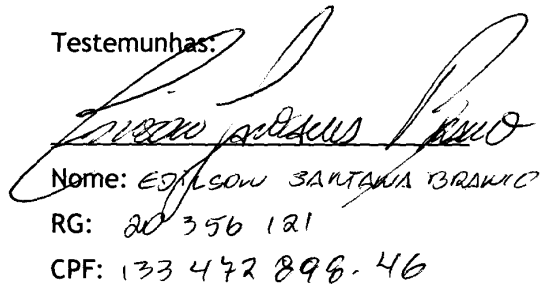 Testemunhas:
Nome: EDILSON SANTANA BRANCO
RG: 20 356 121
CPF: 133 472 898-46